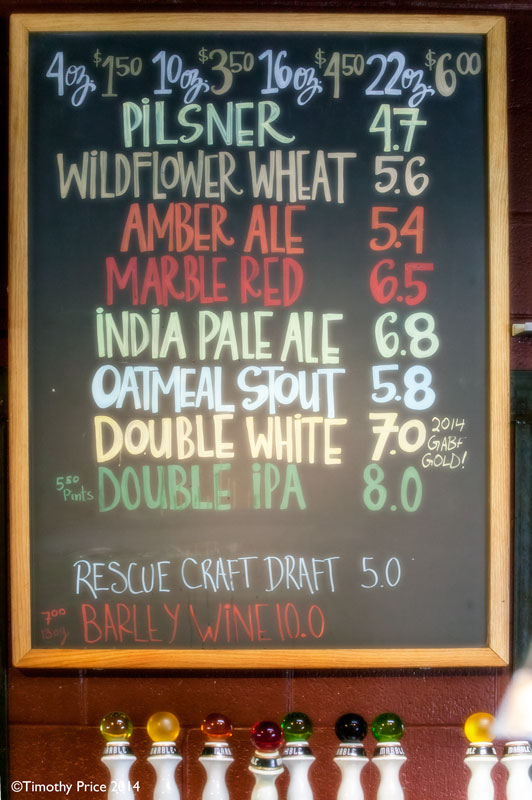 4oz. $1.50 10oz. $3.50 16oz. $4.50 22oz. $6.00
PILSNER 4.7
WILDFLOWER WHEAT 5.6
AMBER ALE 5.4
MARBLE RED 6.5
INDIA PALE ALE 6.8
OATMEAL STOUT 5.8
DOUBLE WHITE 7.0 2014
GABF
GOLD!
5.50
Pints DOUBLE IPA 8.0
RESCUE CRAFT DRAFT 5.0
7.00
13oz BARLEY WINE 10.0
MARBLE MARBLE MARBLE MARBLE
©Timothy Price 2014